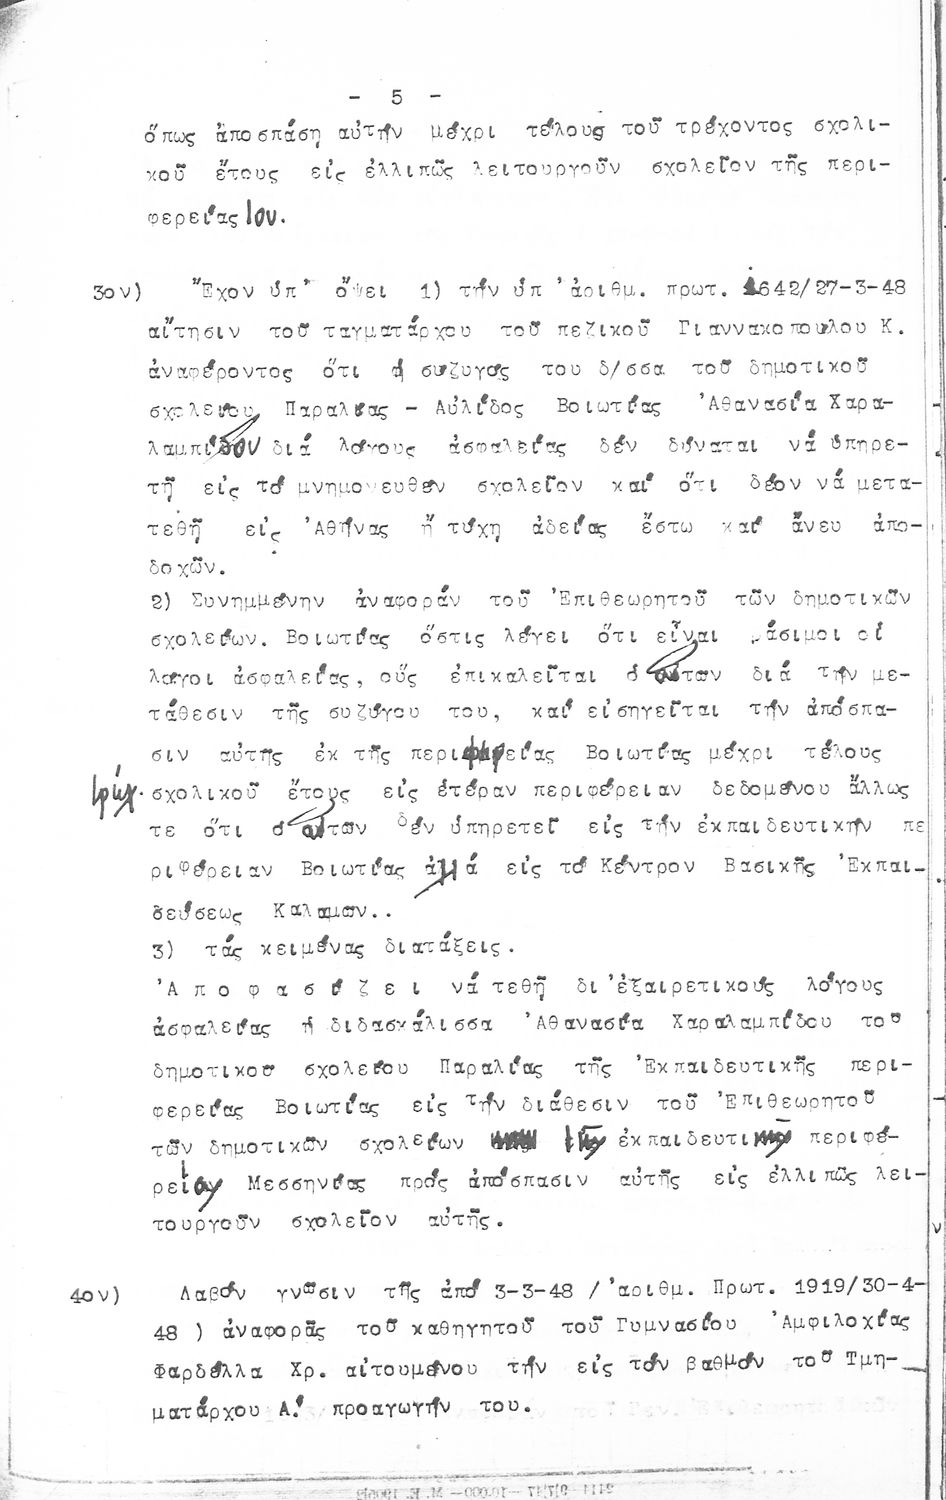 - 5 -
ὅπως ἀποσπάση αὐτήν μέχρι τέλους τοῦ τρέχοντος σχολι-
κοῦ ἔτους εἰς ἐλλιπῶς λειτουργοῦν σχολεῖον τῆς περι-
φερείας Ιου.
3ον) Ἔχον ὑπ' ὄψει 1) τήν ὑπ 'ἀριθμ. πρωτ. 1642/27-3-48
αἴτησιν τοῦ ταγματάρχου τοῦ πεζικοῦ Γιαννακοπούλου Κ.
ἀναφέροντος ὅτι ἡ συζυγος του δ/σσα τοῦ δημοτικοῦ
σχολείου Παραλίας - Αὐλίδος Βοιωτίας 'Αθανασία Χαρα-
λαμπίδου διά λόγους ἀσφαλείας δέν δύναται νά ὑπηρε-
τῆ εἰς τό μνημονευθέν σχολεῖον καί ὅτι δέον νά μετα-
τεθῆ εἰς 'Αθήνας ἤ τύχη ἀδείας ἔστω καί ἄνευ ἀπο-
δοχῶν.
2) Συνημμένην ἀναφοράν τοῦ 'Επιθεωρητοῦ τῶν δημοτικῶν
σχολείων. Βοιωτίας ὅστις λέγει ὅτι εἶναι βάσιμοι οἱ
λόγοι ἀσφαλείας, οὕς ἐπικαλεῖται ὁ αἰτῶν διά τήν με-
τάθεσιν τῆς συζύγου του, καί εἰσηγεῖται τήν ἀπόσπα-
σιν αὐτῆς ἐκ τῆς περιφερείας Βοιωτίας μέχρι τέλους
τρέχ. σχολικοῦ ἔτους εἰς ἑτέραν περιφέρειαν δεδομένου ἄλλως
τε ὅτι ὁ αἰτῶν δέν ὑπηρετεῖ εἰς τήν ἐκπαιδευτικήν πε
ριφέρειαν Βοιωτίας ἀλλά εἰς τό Κέντρον Βασικῆς 'Εκπαι-
δεύσεως Καλαμῶν..
3) τάς κειμένας διατάξεις.
'Α π ο φ α σ ί ζ ε ι νά τεθῆ δι 'ἐξαιρετικούς λόγους
ἀσφαλείας ἡ διδασκάλισσα 'Αθανασία Χαραλαμπίδου τοῦ
δημοτικοῦ σχολείου Παραλίας τῆς 'Εκπαιδευτικῆς περι-
φερείας Βοιωτίας εἰς τήν διάθεσιν τοῦ 'Επιθεωρητοῦ
τῶν δημοτικῶν σχολείων τῆς ἐκπαιδευτικῆς περιφε-
ρείας Μεσσηνίας πρός ἀπόσπασιν αὐτῆς εἰς ἐλλιπῶς λει-
τουργοῦν σχολεῖον αὐτῆς.
4ον) Λαβόν γνῶσιν τῆς ἀπό 3-3-48 /'αριθμ. Πρωτ. 1919/30-4-
48 ) ἀναφορᾶς τοῦ καθηγητοῦ τοῦ Γυμνασίου 'Αμφιλοχίας
Φαρδέλλα Χρ. αἰτουμένου τήν εἰς τόν βαθμόν τοῦ Τμη-
ματάρχου Α.' προαγωγήν του.